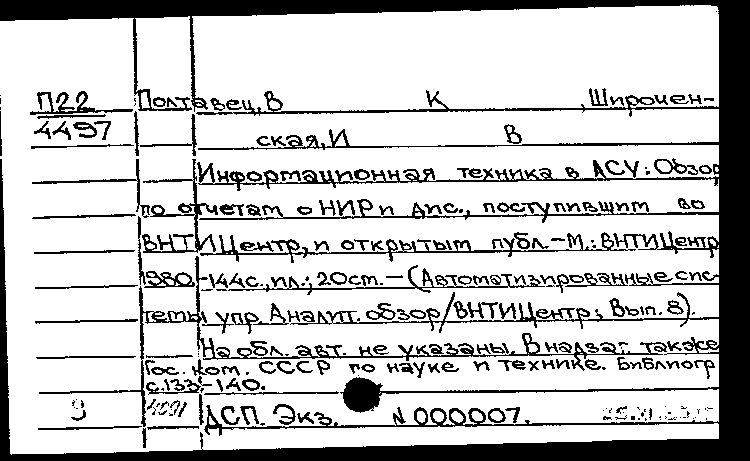 П22 Полтавец, В К , Широчен-
4497 ская, И В
Информационная техника в АСУ: Обзор
по отчетам о НИР и дис., поступившим во
ВНТИЦентр, и открытым публ.-М.: ВНТИЦентр
1980.-144с., ил.; 20см.-(Автоматизированные сис-
темы упр. Аналит. обзор/ВНТИЦентр; Вып. 8).
На обл. авт. не указаны. В надзаг. также
Гос. ком. СССР по науке и технике. Библиогр
с.133-140.
9 4091 ДСП. Экз. N 000007.